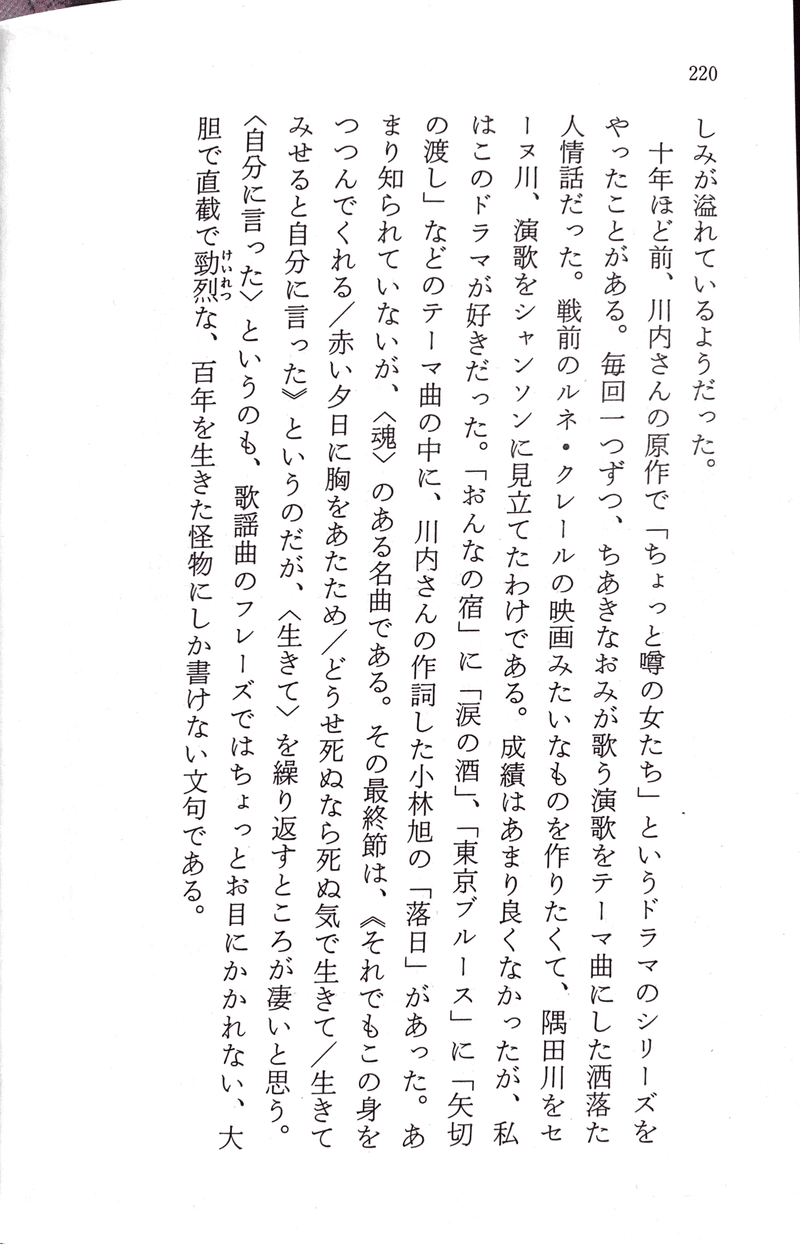 220
しみが溢れているようだった。
　十年ほど前、川内さんの原作で「ちょっと噂の女たち」というドラマのシリーズを
やったことがある。毎回一つずつ、ちあきなおみが歌う演歌をテーマ曲にした洒落た
人情話だった。戦前のルネ・クレールの映画みたいなものを作りたくて、隅田川をセ
ーヌ川、演歌をシャンソンに見立てたわけである。成績はあまり良くなかったが、私
はこのドラマが好きだった。「おんなの宿」に「涙の酒」、「東京ブルース」に「矢切
の渡し」などのテーマ曲の中に、川内さんの作詞した小林旭の「落日」があった。あ
まり知られていないが、〈魂〉のある名曲である。その最終節は、《それでもこの身を
つつんでくれる／赤い夕日に胸をあたため／どうせ死ぬなら死ぬ気で生きて／生きて
みせると自分に言った》というのだが、〈生きて〉を繰り返すところが凄いと思う。
〈自分に言った〉というのも、歌謡曲のフレーズではちょっとお目にかかれない、大
胆で直截で勁烈な、百年を生きた怪物にしか書けない文句である。
けいれつ